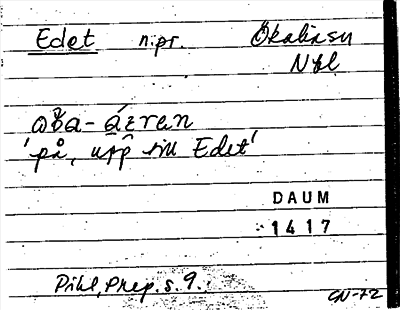 Edet n.pr. Ökalixsn
Nbl
'på, upp till Edet'
DAUM
1417
Pihl, Prep. s. 9.
GN-72